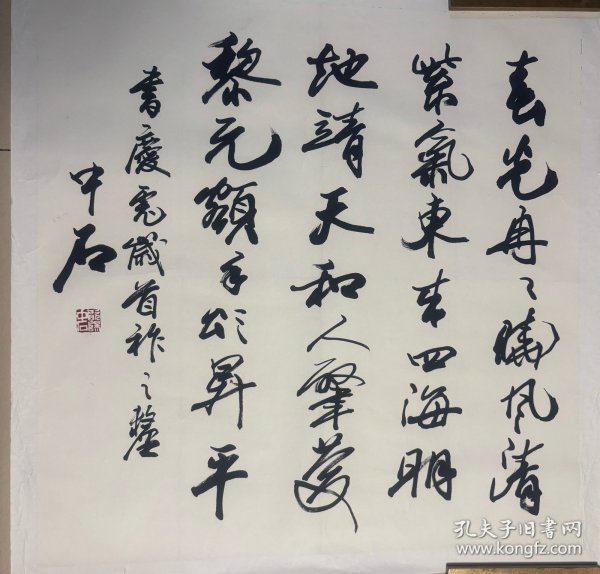 春光冉〻曉风清
紫氣東来四海明
地靖天和人肇慶
黎元額手頌昇平
書慶兎歲首祚之釐
中石
孔夫子旧書网
www.kongfz.com